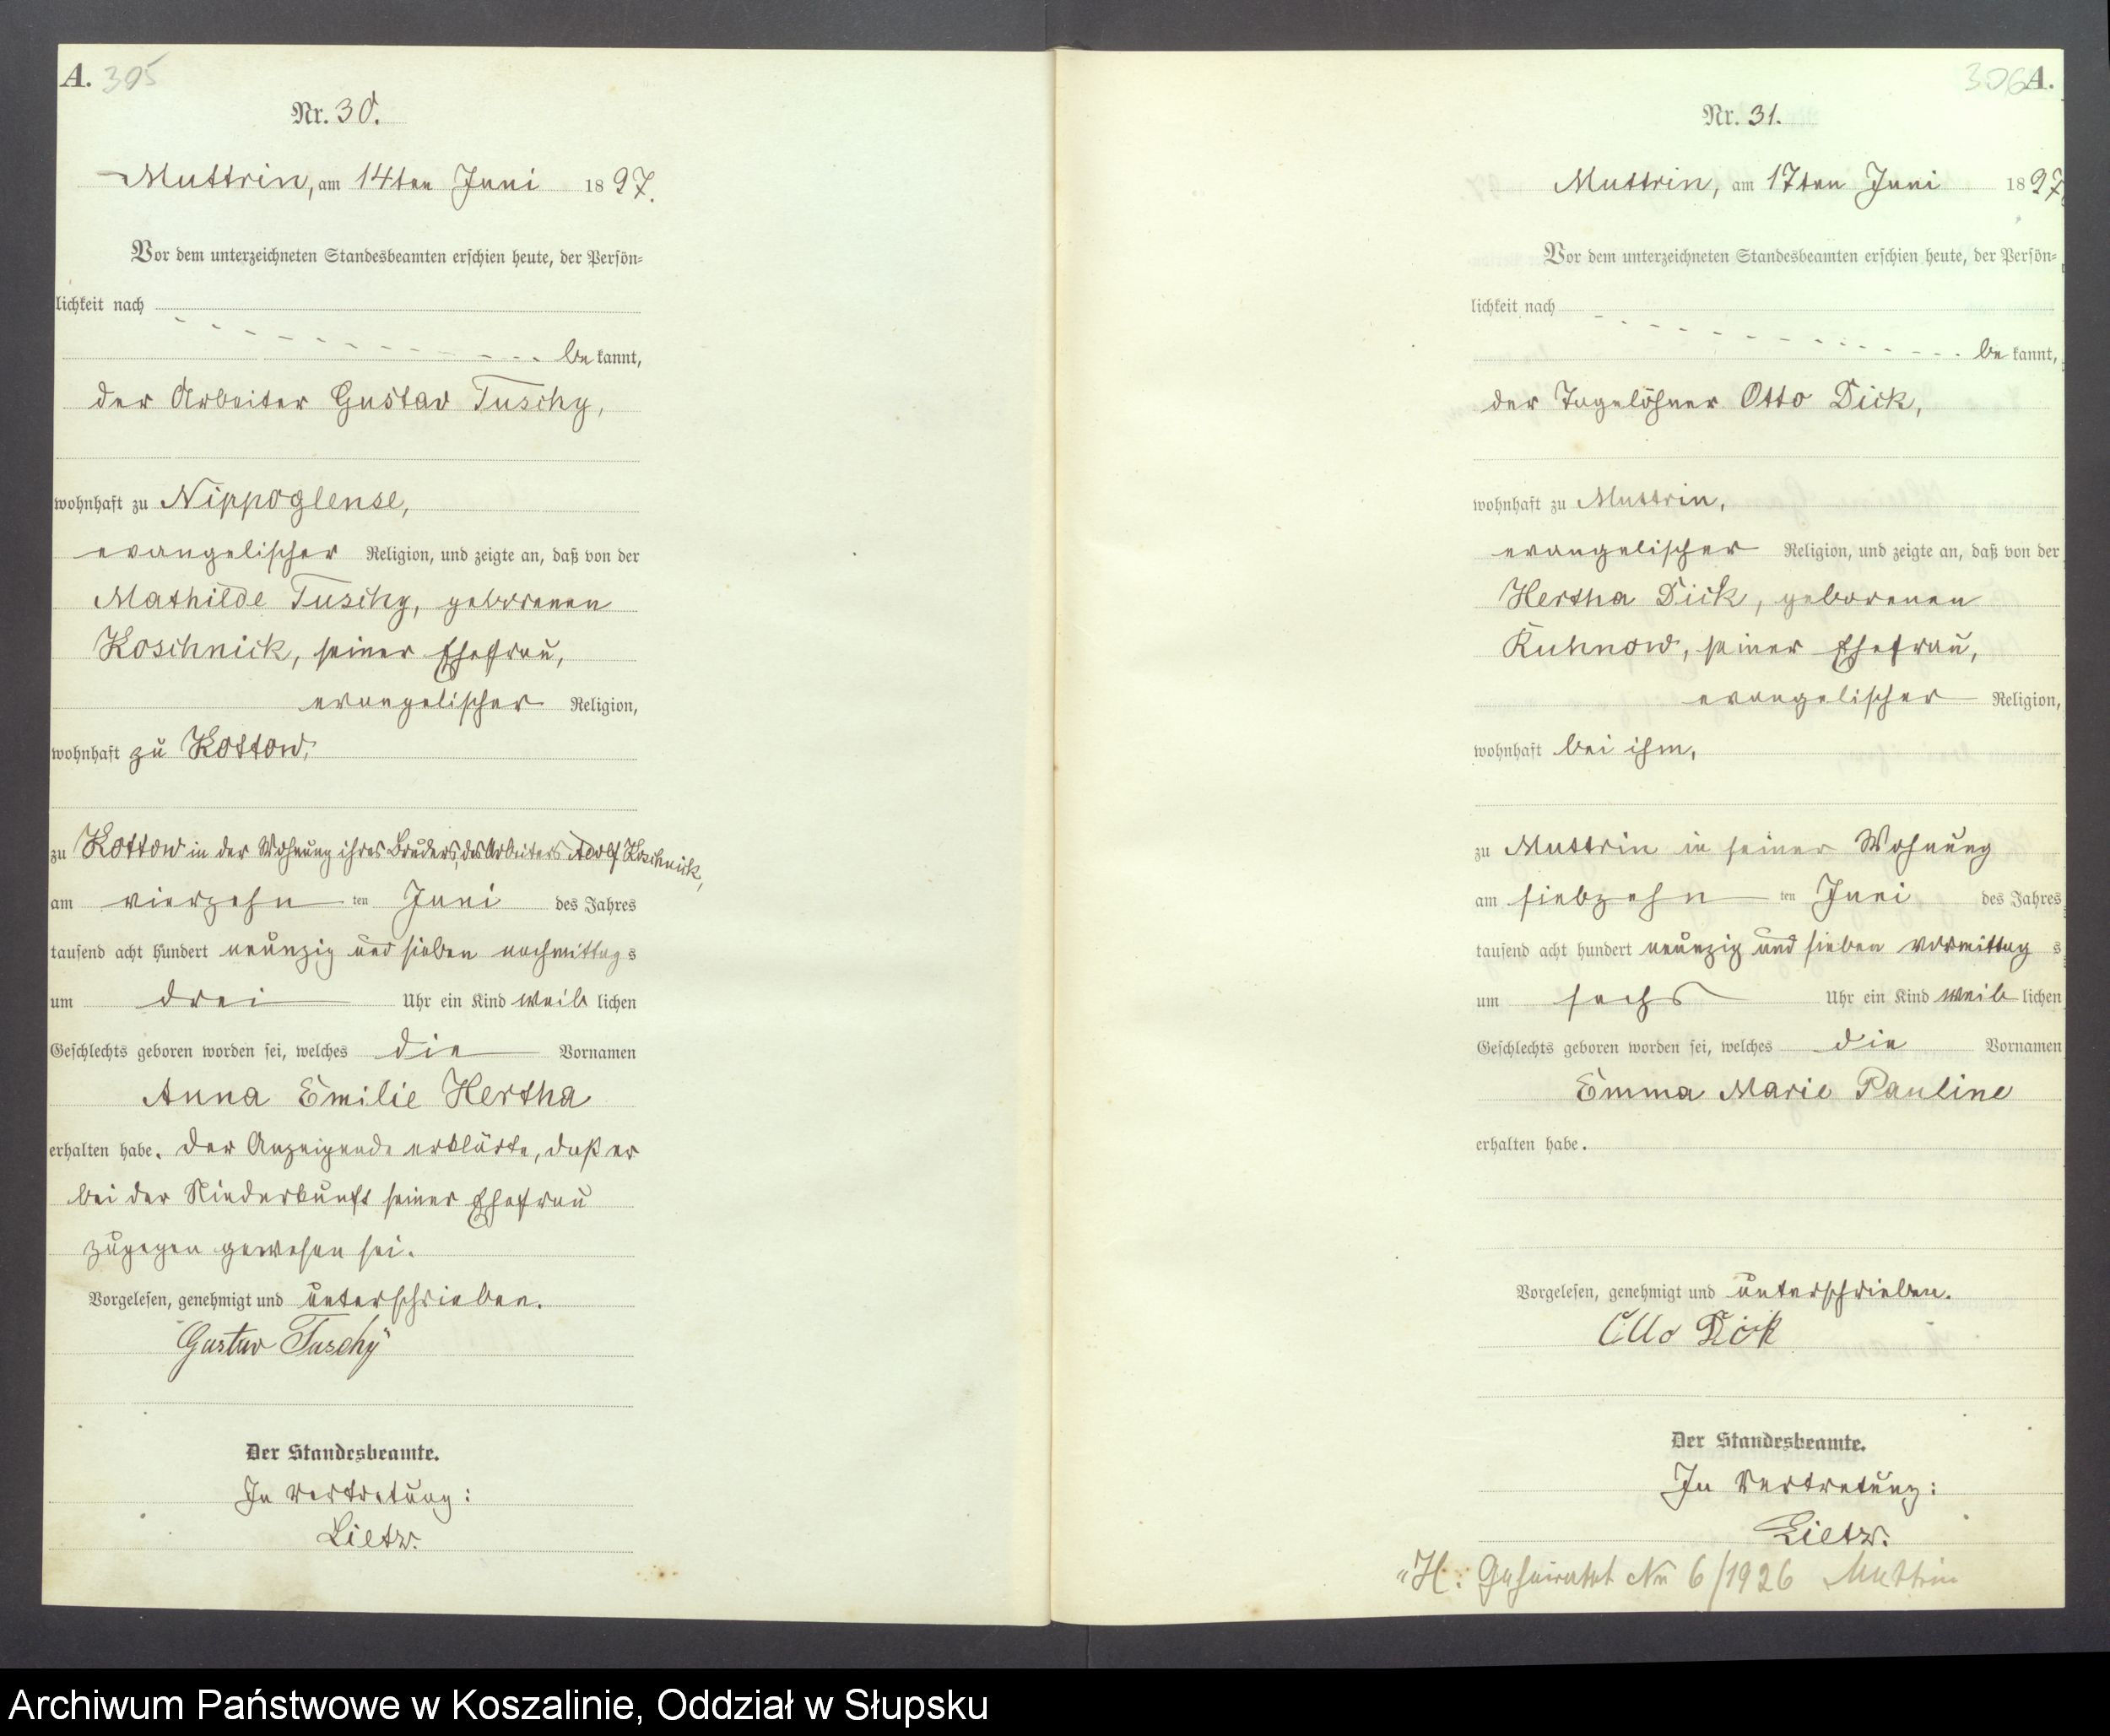 A. 305
Nr. 30.
Muttrin, am 14ten Juni 1897.
Vor dem unterzeichneten Standesbeamten erschien heute, der Persön-
lichkeit nach
be kannt,
der Arbeiter Gustav Tuschy,
wohnhaft zu Nippoglense,
evangelischer Religion, und zeigte an, daß von der
Mathilde Tuschy, geborenen
Koschnick, seiner Ehefrau,
evangelischer Religion,
wohnhaft zu Kottow,
zu Kottow in der Wohnung ihres Bruders, des Arbeiters Adolf Koschnick,
am vierzehn ten Juni des Jahres
tausend acht hundert neunzig und sieben nachmittag s
um drei Uhr ein Kind weib lichen
Geschlechts geboren worden sei, welches die Vornamen
Anna Emilie Hertha
erhalten habe. Der Anzeigende erklärte, daß er
bei der Niederkunft seiner Ehefrau
zugegen gewesen sei.
Vorgelesen, genehmigt und unterschrieben.
Gustav Tuschy
Der Standesbeamte.
In Vertretung:
Lietz.
306 A.
Nr. 31.
Muttrin, am 17ten Juni 1897.
Vor dem unterzeichneten Standesbeamten erschien heute, der Persön-
lichkeit nach
be kannt,
der Tagelöhner Otto Dick,
wohnhaft zu Muttrin,
evangelischer Religion, und zeigte an, daß von der
Hertha Dick, geborenen
Kuhnow, seiner Ehefrau,
evangelischer Religion,
wohnhaft bei ihm,
zu Muttrin in seiner Wohnung
am siebzehn ten Juni des Jahres
tausend acht hundert neunzig und sieben vormittag s
um sechs Uhr ein Kind weib lichen
Geschlechts geboren worden sei, welches die Vornamen
Emma Marie Pauline
erhalten habe.
Vorgelesen, genehmigt und unterschrieben.
Otto Dick
Der Standesbeamte.
In Vertretung:
Lietz.
H: Geheiratet Nr 6/1926 Muttrin
Archiwum Państwowe w Koszalinie, Oddział w Słupsku